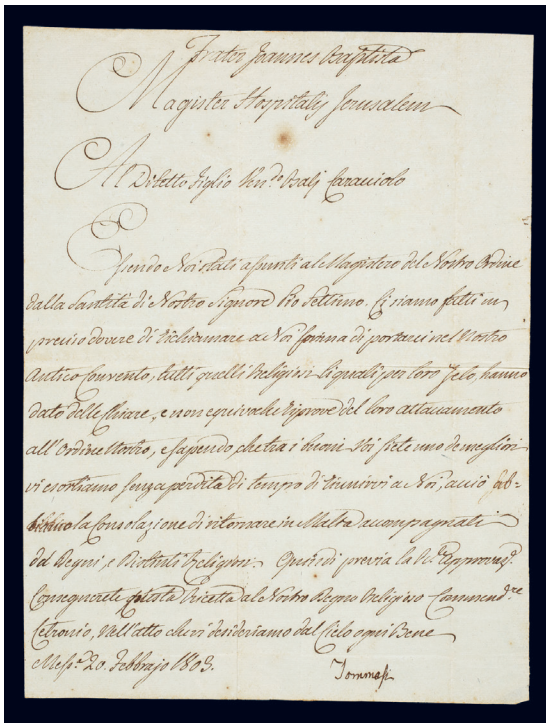 Frater Joannes Baptista
Magister Hospitalis Jerusalem
Al Diletto Figlio Ven.do Balj Caracciolo
Essendo Noi stati assunti al Magistero del Nostro Ordine
dalla Santità di Nostro Signore Pio Settimo. Ci siamo fatti un
preciso dovere di richiamare a Noi prima di portarci nel Nostro
Antico Convento, tutti quelli Religiosi li quali per loro Zelo, hanno
dato delle chiare, e non equivoche riprove del loro attaccamento
all'Ordine Nostro, e sapendo, che tra i buoni Voi siete uno de megliori
vi esortiamo senza perdita di tempo di riunirvi a Noi, acciò ab=
la Consolazione di ritornare in Malta accompagnati
da Degni, e Religiosi. Quindi previa la
Consegnerete questa Ricetta al Nostro Degno Religioso Commend.re
nell'atto che vi desideriamo dal Cielo ogni Bene
Mess.a 20. Febbrajo 1803.
Tommasi